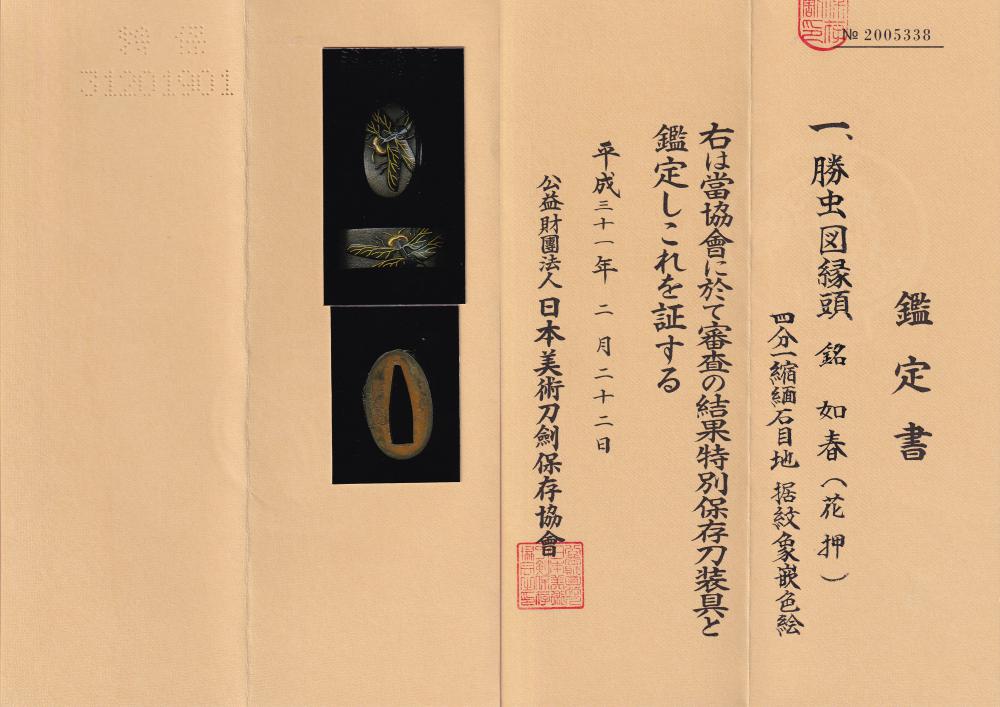 № 2005338
鑑定書
一、勝虫図縁頭 銘 如春(花押)
四分一縮緬石目地 据紋象嵌色絵
右は當協會に於て審査の結果特別保存刀装具と
鑑定しこれを証する
平成三十一年 二月二十二日
公益財團法人 日本美術刀劍保存協會
31201901